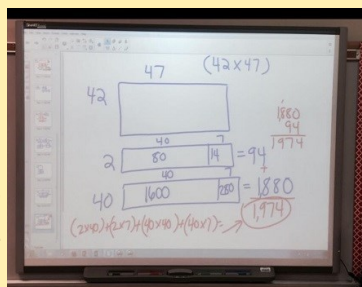 47 (42x47)
42
40 7
2 80 14 = 94
40 7
40 1600 280 = 1880
1,974
1
1880
94
1974
(2x40)+(2x7)+(40x40)+(40x7)=